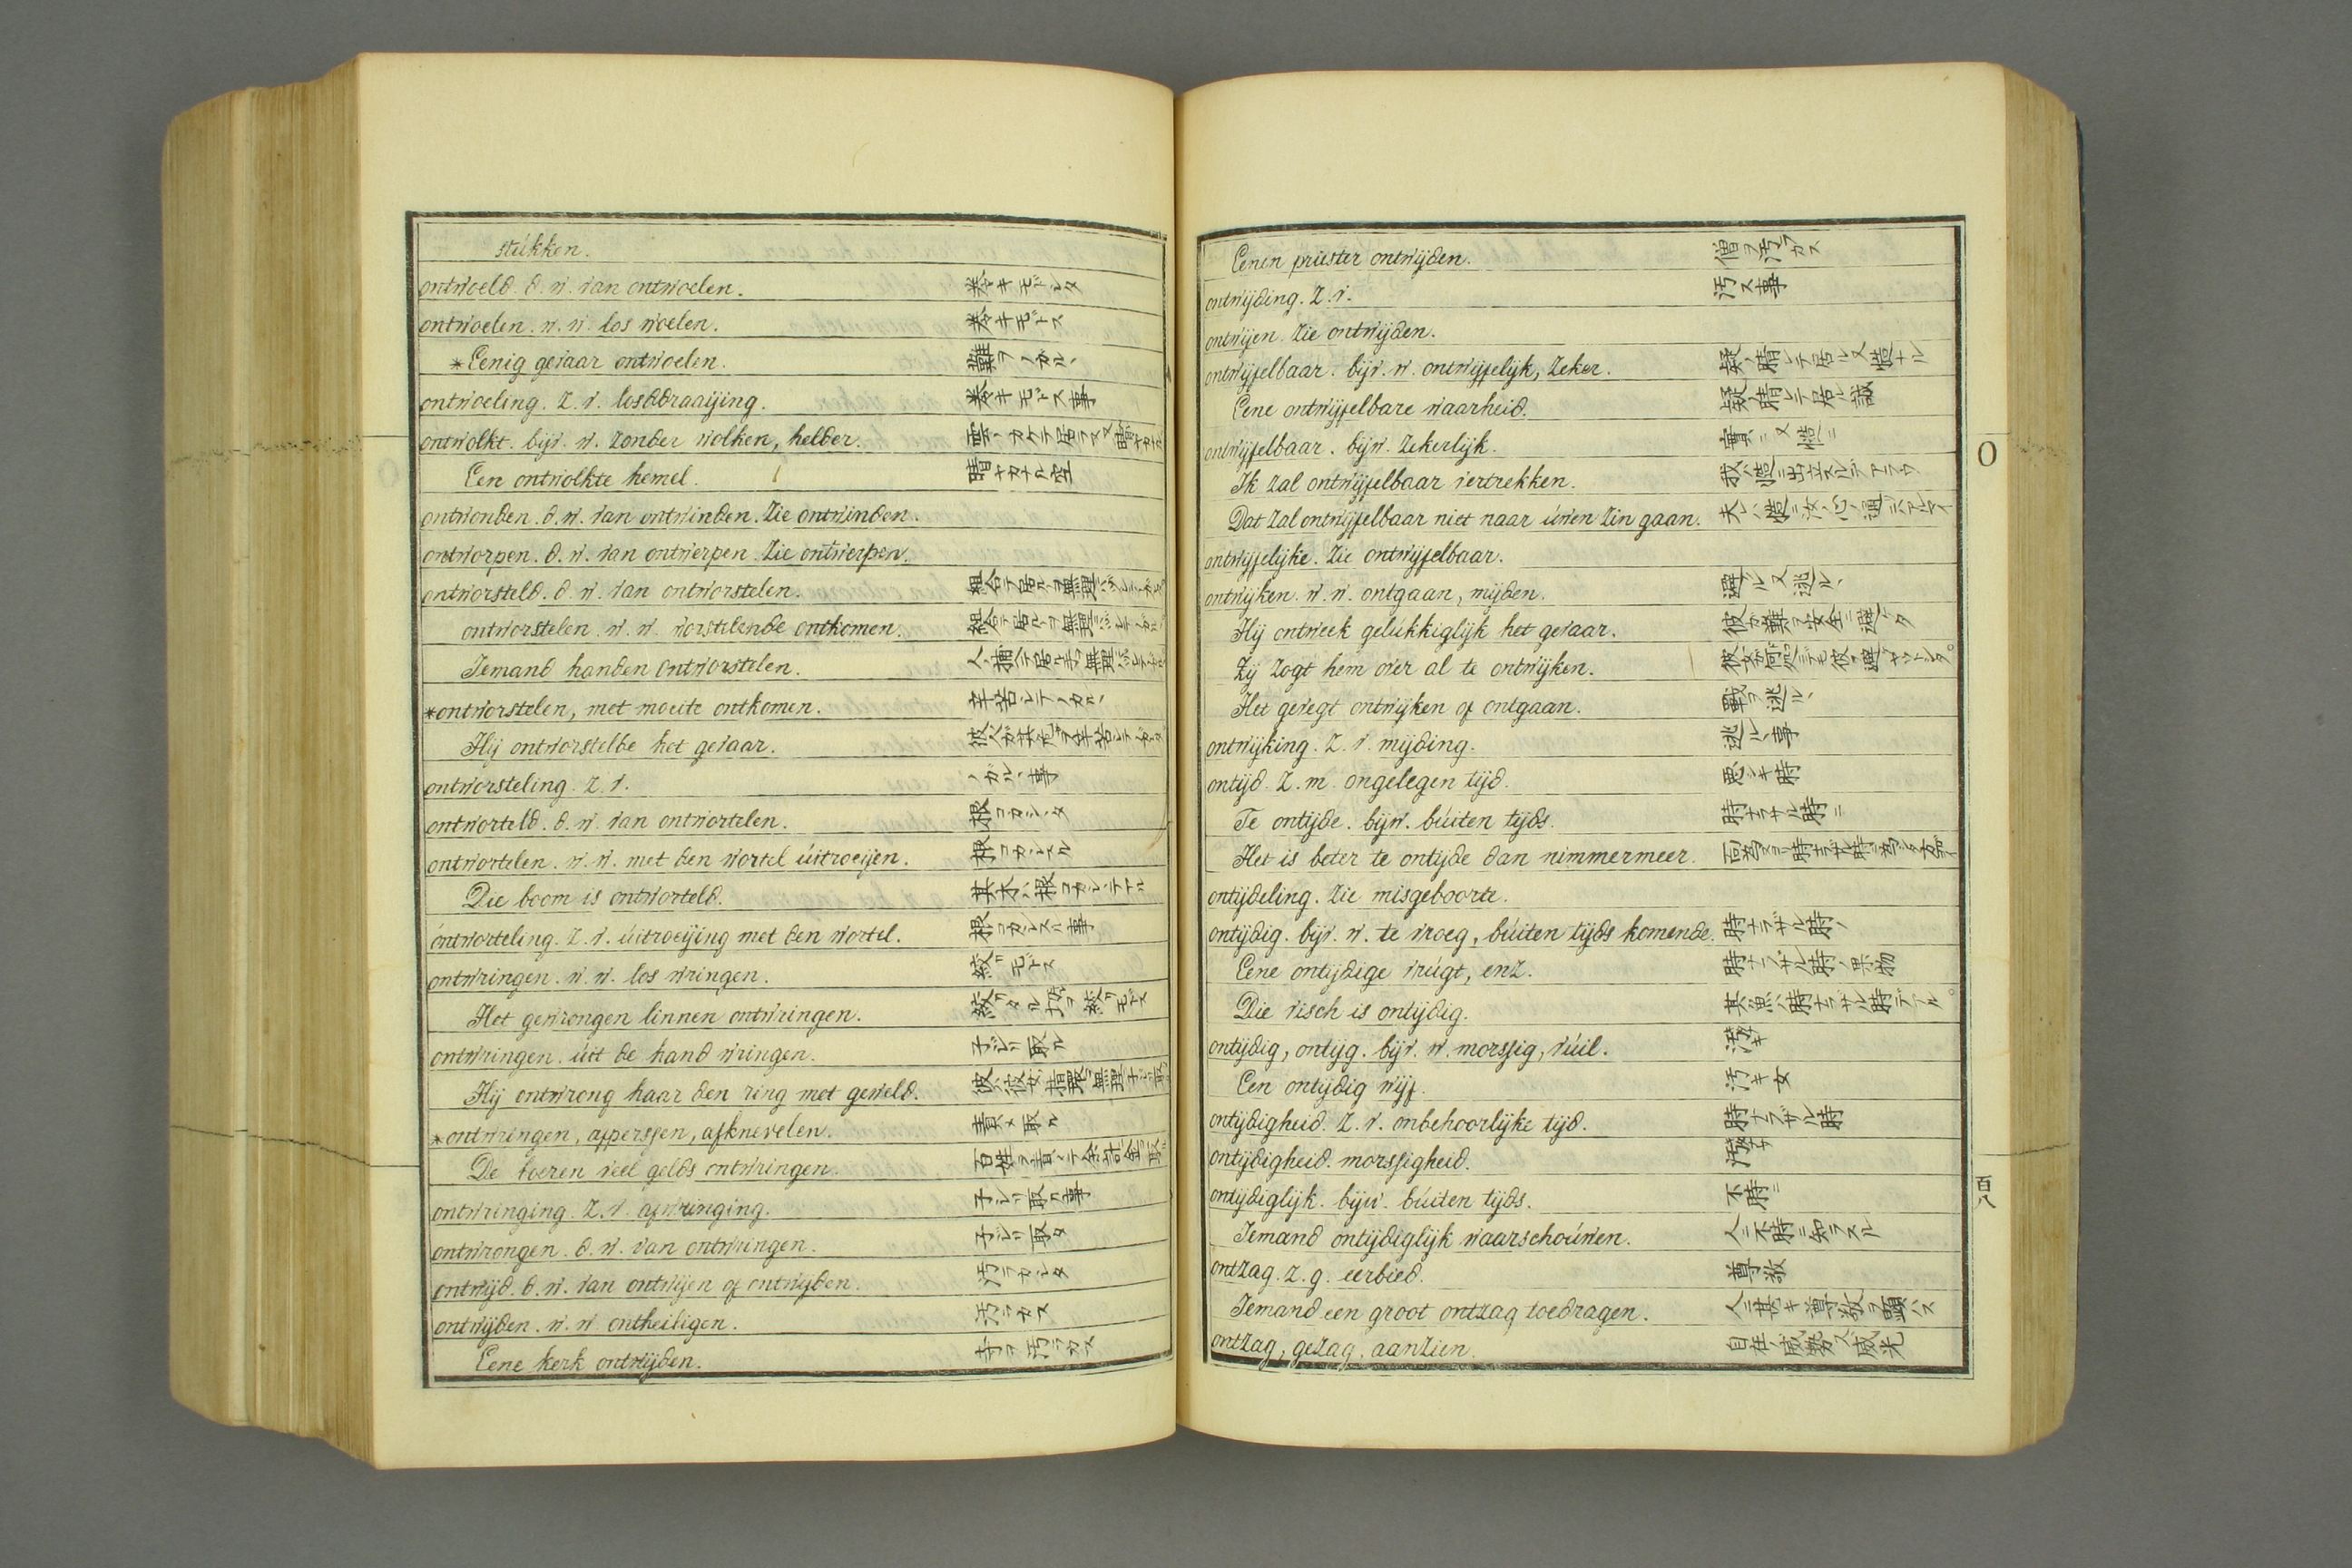 stúkken.
ontwoeld. d. w. van ontwoelen. 巻キモドシタ
ontwoelen. w. w. los woelen. 巻キモドス
*Eenig gevaar ontwoelen. 難ヲノガルヽ
ontwoeling. z. v. losddraaijing. 巻キモドス事
ontwolkt. bijv. w. zonder wolken, helder.
Een ontwolkte hemel. 晴ヤカナル空
ontwonden. d. w. van ontwinden. zie ontwinden.
ontworpen. d. w. van ontwerpen zie ontwerpen.
ontworsteld. d. w. van ontworstelen.
ontworstelen. w. w. worstelende ontkomen.
Iemand handen ontworstelen.
*ontworstelen, met moeite ontkomen. 辛苦シテノガルヽ
Hij ontworstelde het gevaar.
ontworsteling. z. v. ノガルヽ事
ontworteld. d. w. van ontwortelen. 根コガシタ
ontwortelen. w. w. met den wortel úitroeijen. 根コガシスル
Die boom is ontworteld. 其木ハ根コガシテアル
ontworteling. z. v. úitroeijing met den wortel. 根コガシスル事
ontwringen. w. w. los wringen. 絞リモドス
Het gewrongen linnen ontwringen.
ontwringen. úit de hand wringen. 子ジリ取ル
Hij ontwrong haar den ring met geweld.
*ontwringen, afperssen, afknevelen. 責メ取ル
De boeren veel gelds ontwringen.
ontwringing. z. v. afwringing. 子ジリ取ル事
ontwrongen. d. w. van ontwringen. 子ジリ取タ
ontwijd. d. w. van ontwijen of ontwijden. 汚ラカシタ
ontwijden. w. w. ontheiligen. 汚ラカス
Eene kerk ontwijden. 寺ヲ汚ラカス
Eenen priester ontwijden. 僧ヲ汚ラカス
ontwijding. z. v. 汚ス事
ontwijen. zie ontwijden.
ontwijfelbaar. bijv. w. ontwijfelijk, zeker.
Eene ontwijfelbare waarheid.
ontwijfelbaar. bijw. zekerlijk.
Ik zal ontwijfelbaar vertrekken.
Dat zal ontwijfelbaar niet naar úwen zin gaan.
ontwijfelijke. zie ontwijfelbaar.
ontwijken. w. w. ontgaan, mijden. 避クル又逃ルヽ
Hij ontweek gelúkkiglijk het gevaar. 彼ガ難ヲ安全ニ避ケタ
Zij zogt hem over al te ontwijken.
Het gevegt ontwijken of ontgaan. 戰ヲ逃ルヽ
ontwijking. z. v. mijding. 逃ルヽ事
ontijd. z. m. ongelegen tijd. 悪シキ時
Te ontijde. bijw. búiten tijds. 時ナラザル時ニ
Het is beter te ontijde dan nimmermeer.
ontijdeling. zie misgeboorte.
ontijdig. bijv. w. te vroeg, búiten tijds komende. 時ナラザル時ノ
Eene ontijdige vrúgt, enz. 時ナラザル時ノ果物
Die visch is ontijdig. 其魚ハ時ナラザル時デアル。
ontijdig, ontijg. bijv. w. morssig, vúil. 汚キ
Een ontijdig wijf. 汚キ女
ontijdigheid. z. v. onbehoorlijke tijd. 時ナラザル時
ontijdigheid. morssigheid.
ontijdiglijk. bijw. búiten tijds. 不時ニ
Iemand ontijdiglijk waarschoúwen. 人ニ不時ニ知ラスル
ontzag. z. g. eerbied. 尊敬
Iemand een groot ontzag toedragen. 人ニ甚キ尊敬ヲ顕ハス
ontzag, gezag. aanzien. 自在ノ威勢又威光
O
百八